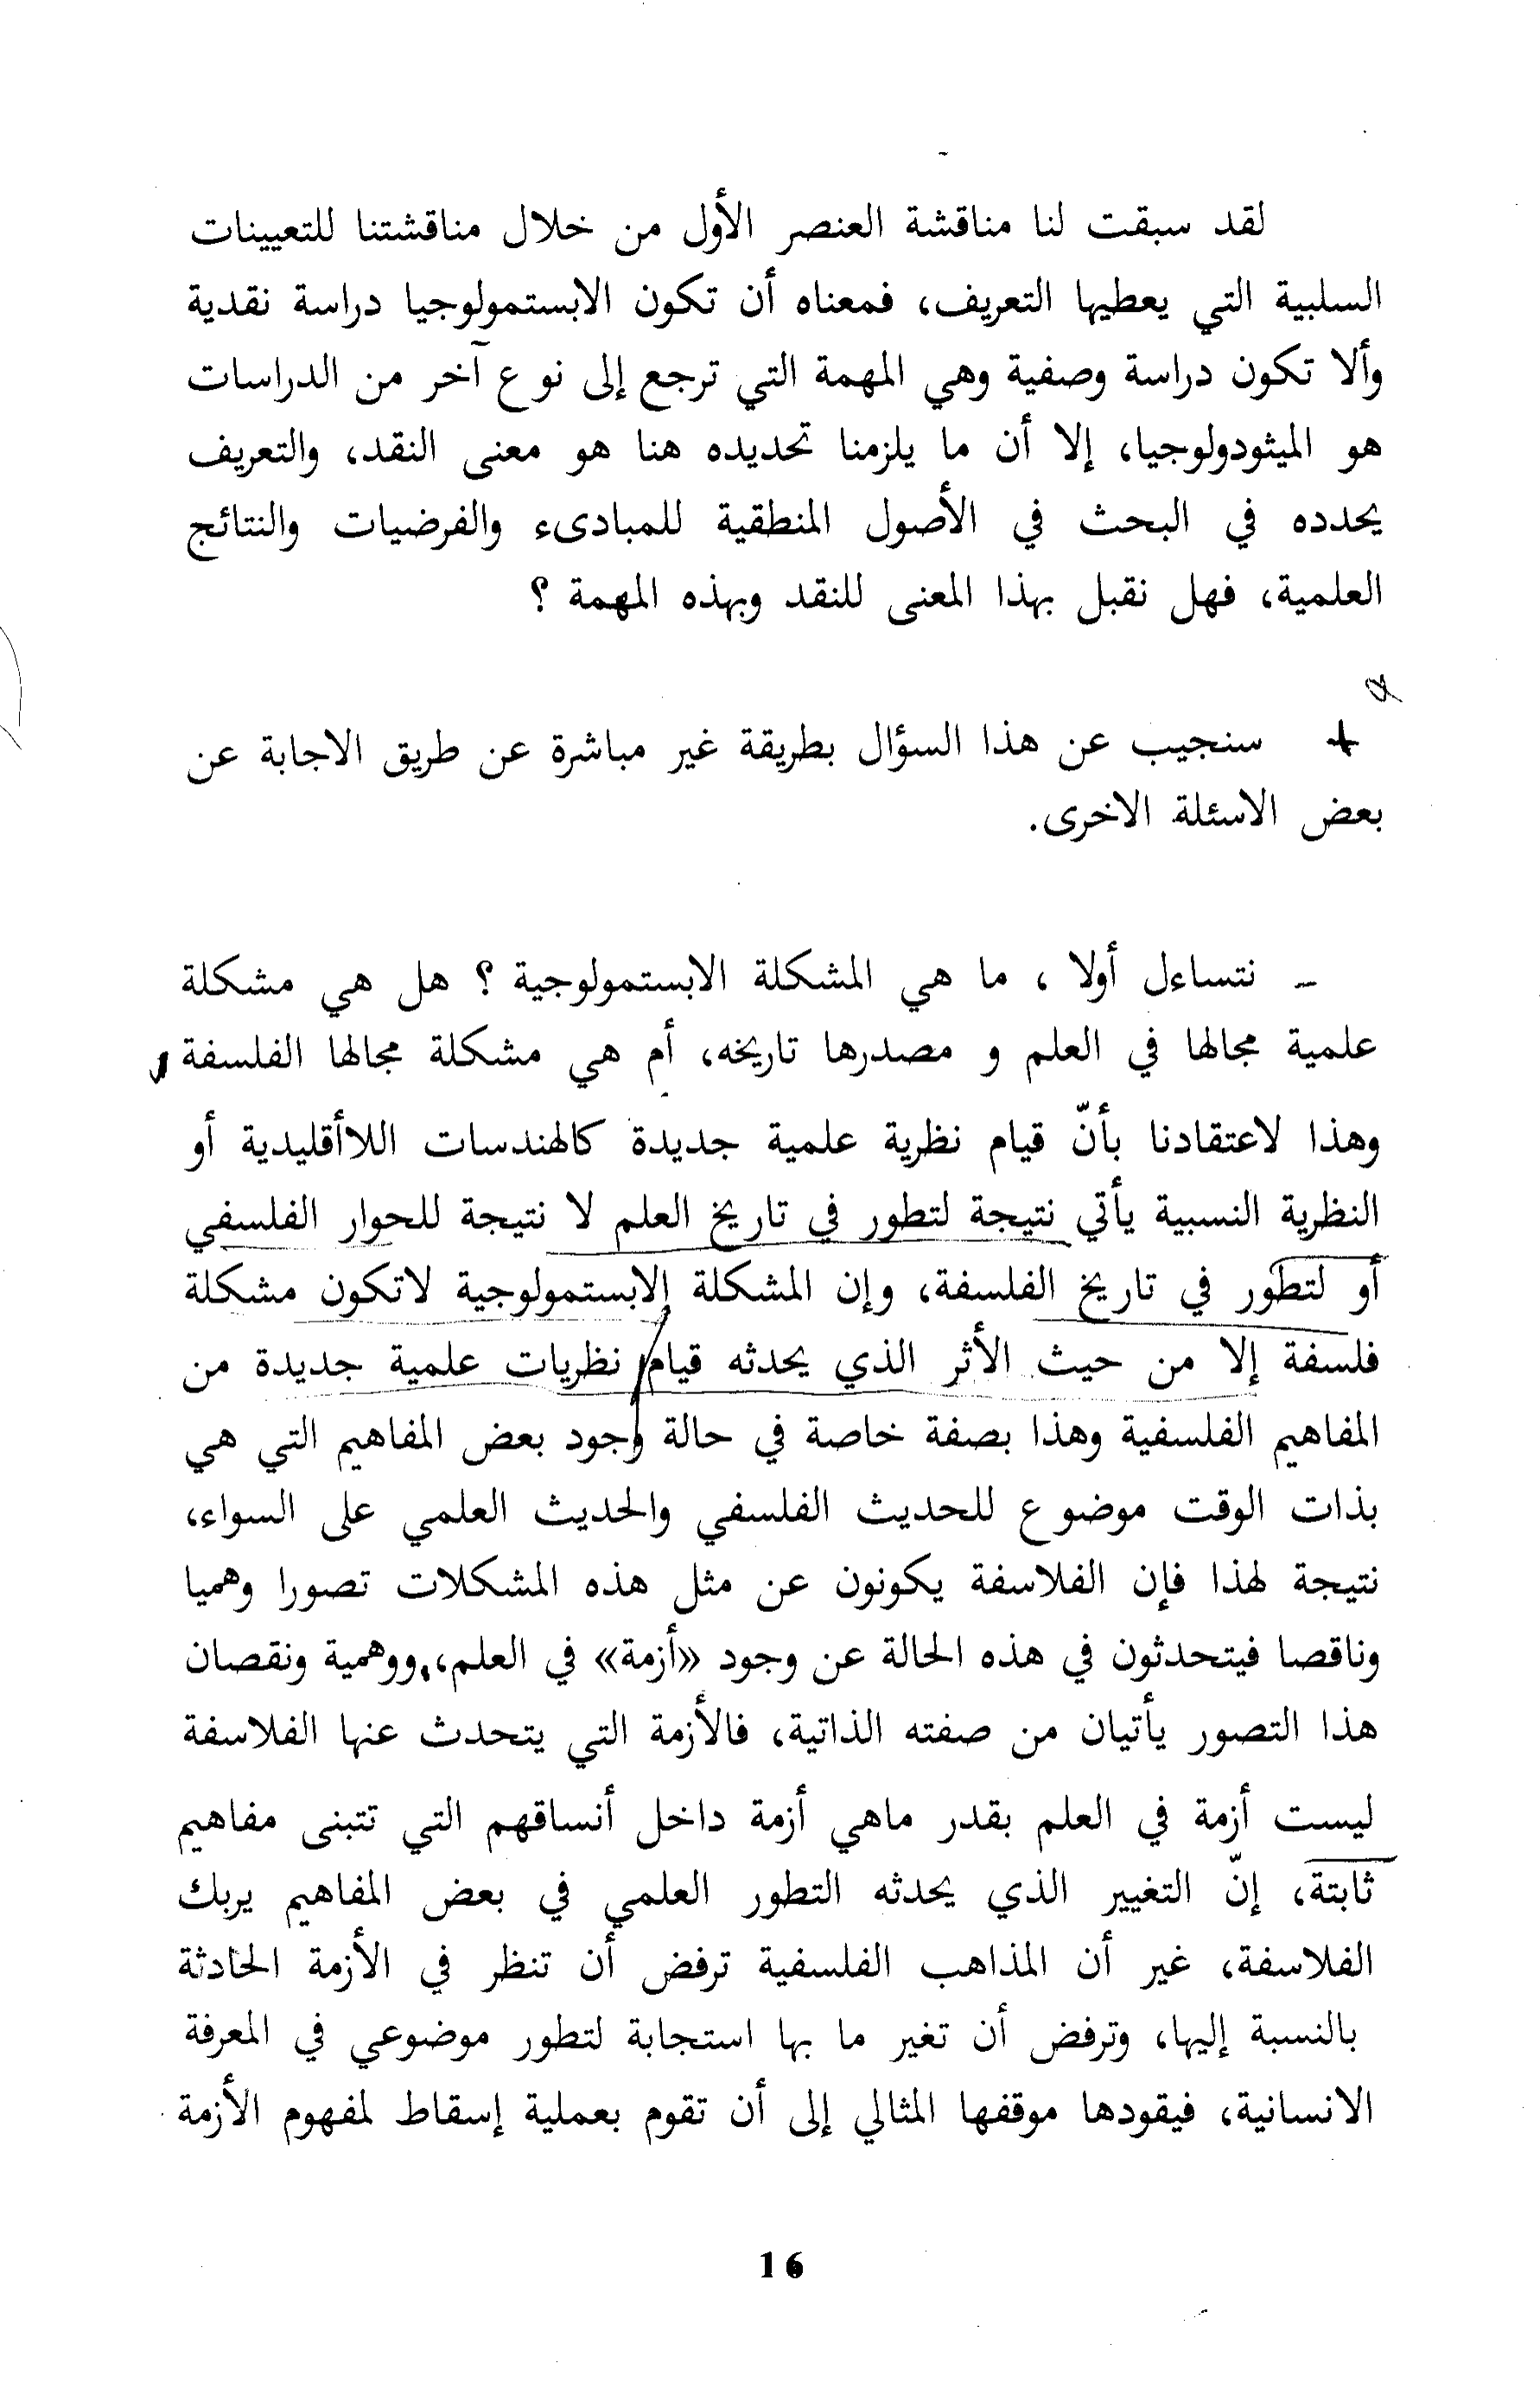 لقد سبقت لنا مناقشة العنصر الأول من خلال مناقشتنا للتعيينات
السلبية التي يعطيها التعريف، فمعناه أن تكون الابستمولوجيا دراسة نقدية
وألا تكون دراسة وصفية وهي المهمة التي ترجع إلى نوع آخر من الدراسات
هو الميثودولوجيا، إلا أن ما يلزمنا تحديده هنا هو معنى النقد، والتعريف
يحدده في البحث في الأصول المنطقية للمبادىء والفرضيات والنتائج
العلمية، فهل نقبل بهذا المعنى للنقد وبهذه المهمة ؟
+ سنجيب عن هذا السؤال بطريقة غير مباشرة عن طريق الاجابة عن
بعض الاسئلة الاخرى.
ــ نتساءل أولا ، ما هي المشكلة الابستمولوجية ؟ هل هي مشكلة
علمية مجالها في العلم و مصدرها تاريخه، أم هي مشكلة مجالها الفلسفة
وهذا لاعتقادنا بأنّ قيام نظرية علمية جديدة كالهندسات اللاأقليدية أو
النظرية النسبية يأتي نتيجة لتطور في تاريخ العلم لا نتيجة للحوار الفلسفي
أو لتطور في تاريخ الفلسفة، وإن المشكلة الابستمولوجية لاتكون مشكلة
فلسفة إلا من حيث الأثر الذي يحدثه قيام نظريات علمية جديدة من
المفاهيم الفلسفية وهذا بصفة خاصة في حالة وجود بعض المفاهيم التي هي
بذات الوقت موضوع للحديث الفلسفي والحديث العلمي على السواء،
نتيجة لهذا فإن الفلاسفة يكونون عن مثل هذه المشكلات تصورا وهميا
وناقصا فيتحدثون في هذه الحالة عن وجود «أزمة» في العلم،،ووهمية ونقصان
هذا التصور يأتيان من صفته الذاتية، فالأزمة التي يتحدث عنها الفلاسفة
ليست أزمة في العلم بقدر ماهي أزمة داخل أنساقهم التي تتبنى مفاهيم
ثابتة، إنّ التغيير الذي يحدثه التطور العلمي في بعض المفاهيم يربك
الفلاسفة، غير أن المذاهب الفلسفية ترفض أن تنظر في الأزمة الحادثة
بالنسبة إليها، وترفض أن تغير ما بها استجابة لتطور موضوعي في المعرفة
الانسانية، فيقودها موقفها المثالي إلى أن تقوم بعملية إسقاط لمفهوم الأزمة
16